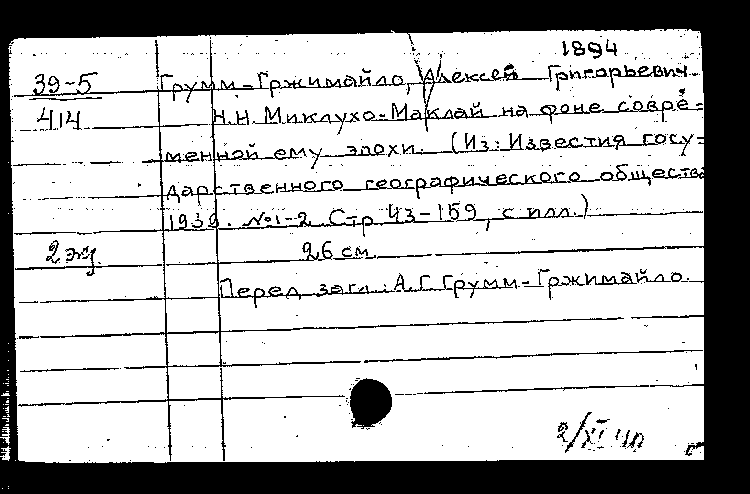 1894
39-5 Грумм-Гржимайло, Алексей Григорьевич.
414 Н.Н. Миклухо-Маклай на фоне совре-
менной ему эпохи. (Из: Известия госу-
дарственного географического общества
1939. №1-2 Стр 43-159, с илл.)
2 экз. 26 см.
Перед загл.: А.Г. Грумм-Гржимайло.
2/XI 40